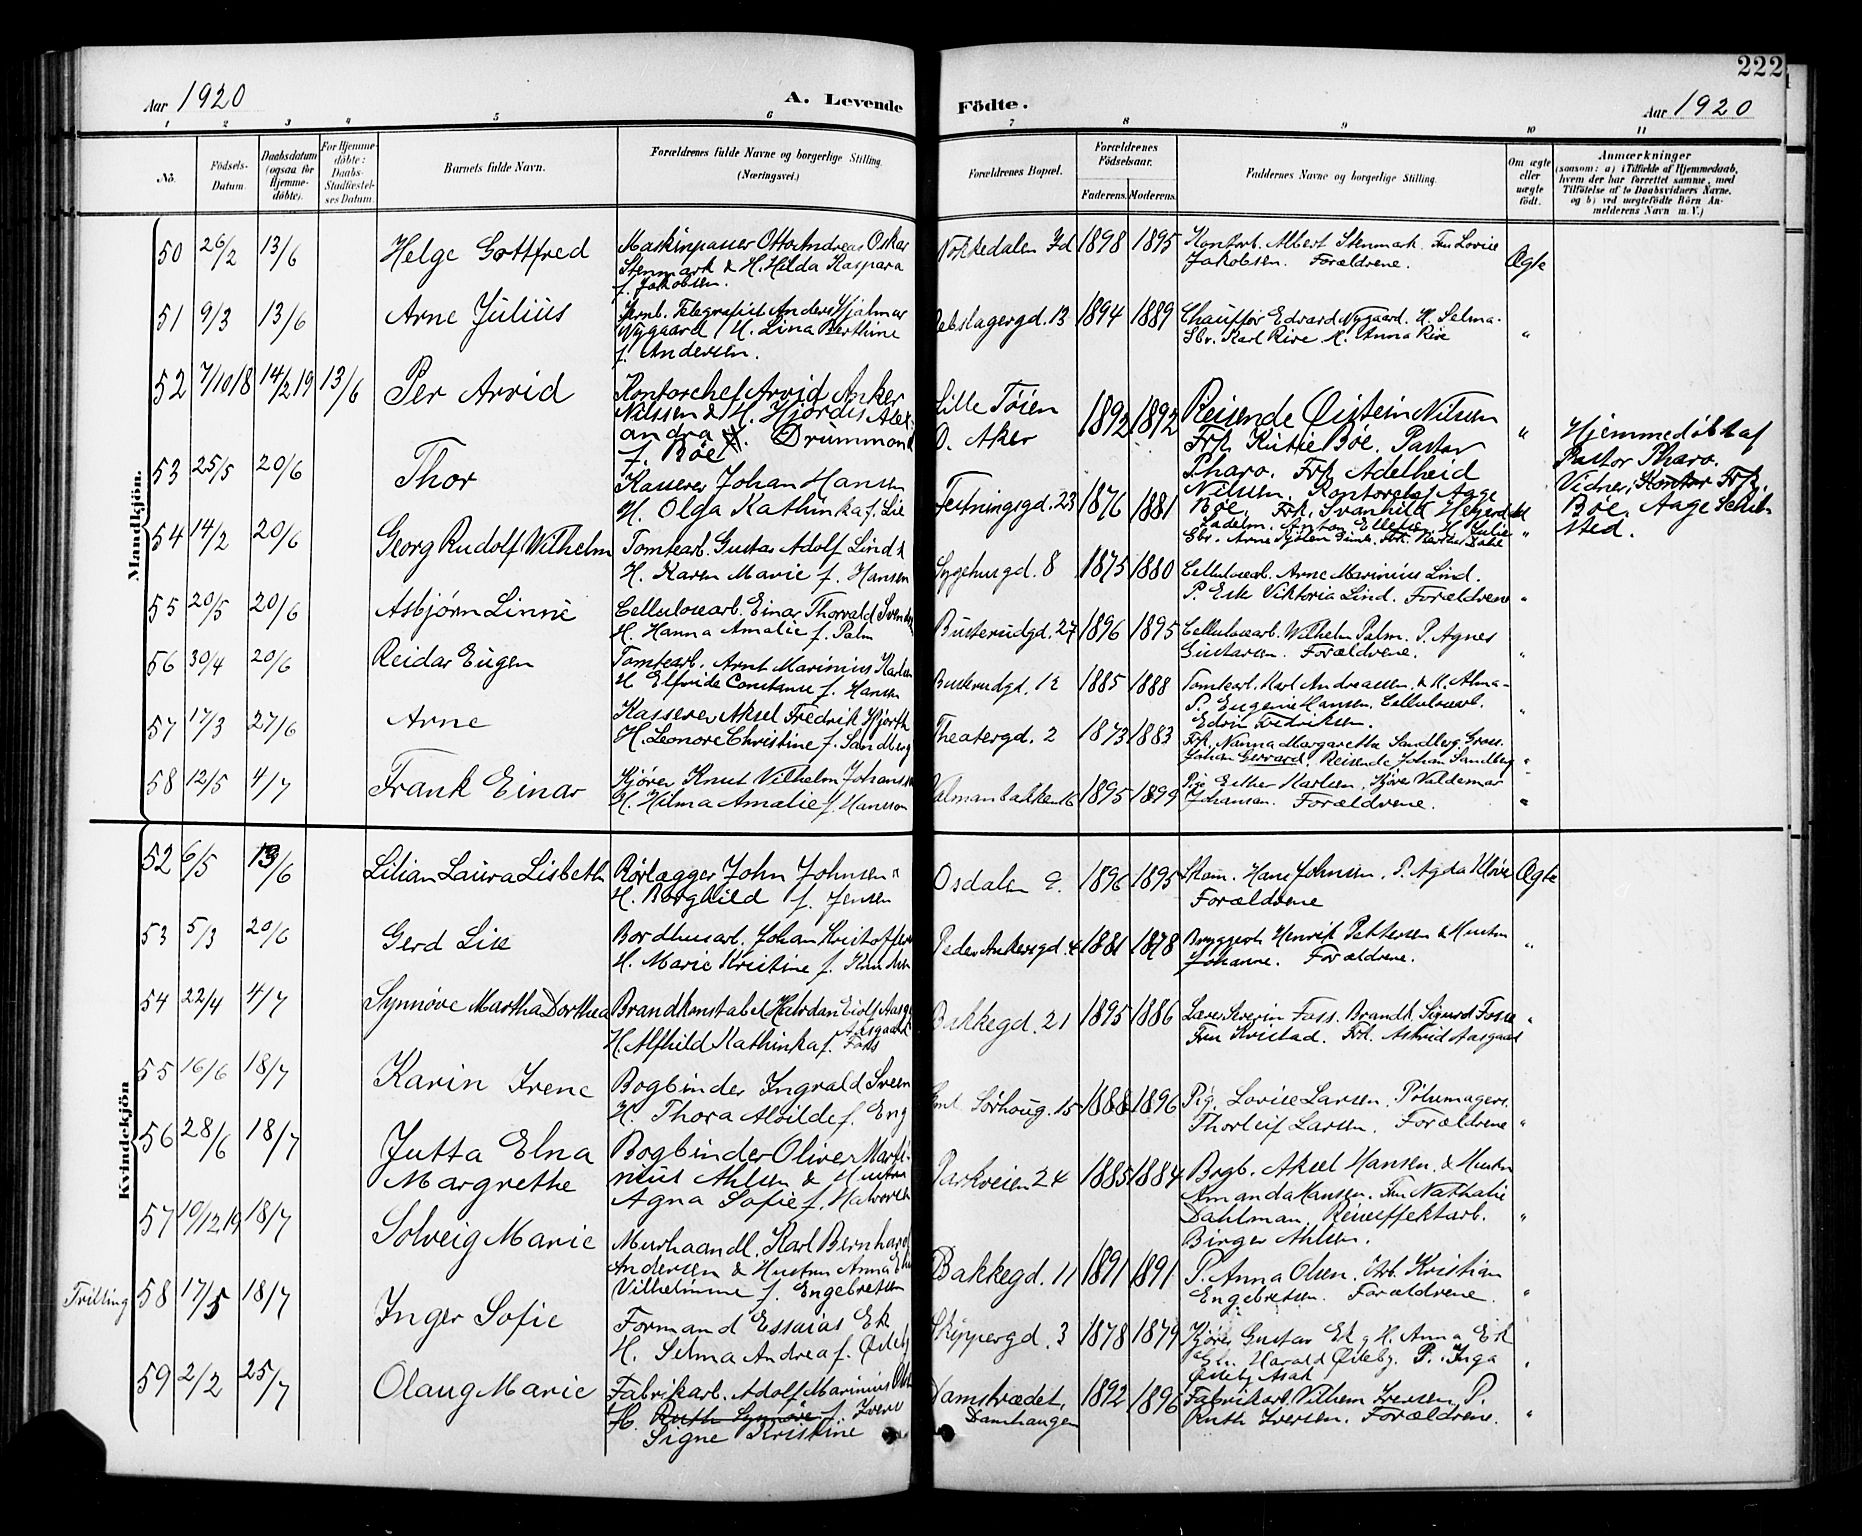 222
Aar 1920
A. Levende Födte.
Aar 1920
1 2 3 4 5 6 7 8 9 10 11
No. Födsels-Datum. Daabsdatum (ogsaa for Hjemmedöbte). For Hjemmedöbte: Daabs-Stadfæstelses Datum. Barnets fulde Navn. Forældrenes fulde Navne og borgerlige Stilling. (Næringsvei.) Forældrenes Bopæl. Forældrenes Födselsaar. Faderens. Moderens. Faddernes Navne og borgerlige Stilling. Om ægte eller uægte födt. Anmærkninger (saasom: a) i Tilfælde af Hjemmedaab, hvem der har forrettet samme, med Tilföielse af to Daabsvidners Navne, og b) ved uægtefödte Börn Anmelderens Navn m. V.)
Mandkjön.
50 26/2 13/6 Helge Gottfred Maskinpasser Otto Andreas Oskar Nokkedalen Fd 1898 1895 Kontorb. Albert Stenmark. Fru Lovise
Stenmark & H. Hilda Kaspara Jakobsen. Forældrene. Ægte
f. Jakobsen.
51 9/3 13/6 Arne Julius Jernb. Telegrafist Anders Hjalmar Rebslagergd. 13 1894 1889 Chauffør Edvard Nygaard. H. Selma.
Nygaard, H. Lina Berthine Sbr. Karl Rive H. Anna Rive "
f. Andersen.
52 7/10 18 14/2 19 13/6 Per Arvid Kontorchef Arvid Anker Lille Tøien 1892 1892 Reisende Øistein Nilsen
Nilssen & H. Hjørdis Alex- O. Aker Frk. Kitte Bøe. Pastor " Hjemmedøbt af
andra Drummond Pharo. Frk Adelheid Pastor Pharo.
f. Bøe Nilsen. Kontorchef Aage Vidner, Frk.
Bøe. Frk. Svanhild Bøe, Aage Schibsted.
53 25/5 20/6 Thor Kasserer Johan Hansen Festningsgd. 23 1876 1881 Sadelm. Anton Ellefsen H. Julie
H. Olga Kathinka f. Lie Sbr. Arne "
54 14/2 20/6 Georg Rudolf Wilhelm Tomtearb. Gustav Adolf Lind & Sygehusgd. 8 1875 1880 Cellulosearb. Arne Marinius Lind.
H. Karen Marie f. Hansen P. Ester Viktoria Lind. Forældrene "
55 20/5 20/6 Asbjørn Linné Cellulosearb. Einar Thorvald Svendsen Buskerudgd. 27 1896 1895 Cellulosearb. Wilhelm Palm. P. Agnes
H. Hanna Amalie f. Palm Gustavsen. Forældrene. "
56 30/4 20/6 Reidar Eugen Tomtearb. Arnt Marinius Karlsen Buskerudgd. 12 1885 1888 Tomtearb. Karl Andreassen. & H. Alma.
H Elfrida Constance f. Hansen P. Eugenie Hansen. Cellulosearb. "
Edvin Fredriksen.
57 17/3 27/6 Arne Kasserer Aksel Fredrik Hjorth Theatergd. 2 1873 1883 Frk. Nanna Margaretha Sandberg. Gross.
H. Leonore Christine f. Sandberg Johan Gerrard. Reisende Johan Sandberg "
58 12/5 4/7 Frank Einar Kjører Knut Vilhelm Johansen Colmansbakken 16 1895 1899 Pige Esther Karlsen. Kjører Valdemar
H. Hilma Amalie f. Hansson Johansen. Forældrene. "
Kvindekjön
52 6/5 13/6 Lilian Laura Lisbeth Rørlægger John Johnsen " Osdalen 9. 1896 1895 Skom. Hans Johnsen. P. Agda Kløve Ægte
H. Borghild f. Jensen Forældrene
53 5/3 20/6 Gerd Lise Bordhusarb. Johan Kristoffersen Peder Ankersgd. 4 1881 1878 Bryggerb Henrik Pettersen & Hustru
H. Marie Kristine f. Knudsen Johanne. Forældrene. "
54 22/4 4/7 Synnøve Martha Dorthea Brandkonstabel Halvdan Eiolf Aasgaard Bakkegd. 21 1895 1886 Lærer Severin Foss. Brandk. Sigurd Fosse "
H. Alfhild Kathinka f. Foss Fru Kvistad. Frk. Astrid Aasgaard
55 16/6 18/7 Karin Irene Bogbinder Ingvald Sveen Gml. Sørhoug. 15 1888 1896 Pig. Lovise Larsen. Pølsemagers.
H. Thora Alvilde f. Eng Thorleif Larsen. Forældrene "
56 28/6 18/7 Jutta Elna Bogbinder Oliver Marti- Parkveien 24 1885 1884 Bogb. Aksel Hansen. & Hustru
Margrethe nius Ahlsen & Hustru Amanda Hansen. Fru Nathalie
Agna Sofie f. Halvorsen Dahlman. Reiseeffektarb. "
Birger Ahlsen.
57 19/12 19 18/7 Solveig Marie Murhaandl. Karl Bernhard Bakkegd. 11 1891 1891 P. Anna Olsen. Arb. Kristian
Andersen & Hustru Anna Engebretsen. Forældrene. "
Vilhelmine f. Engebretsen
Trilling 58 17/5 18/7 Inger Sofie Formand Essaias Ek Skippergd. 3 1878 1879 Kjører Gustav Ek & H. Anna Ek
H. Selma Andrea f. Østeby Harald Østeby. P. Inga "
Østeby Asak
59 2/2 25/7 Olaug Marie Fabrikarb. Adolf Marinius Olsen Damstrædet, 1892 1896 Fabrikarb. Vilhelm Iversen, P.
H. Ruth Synnøve f. Iversen Damhaugen Ruth Iversen. Forældrene. "
Signe Kristine